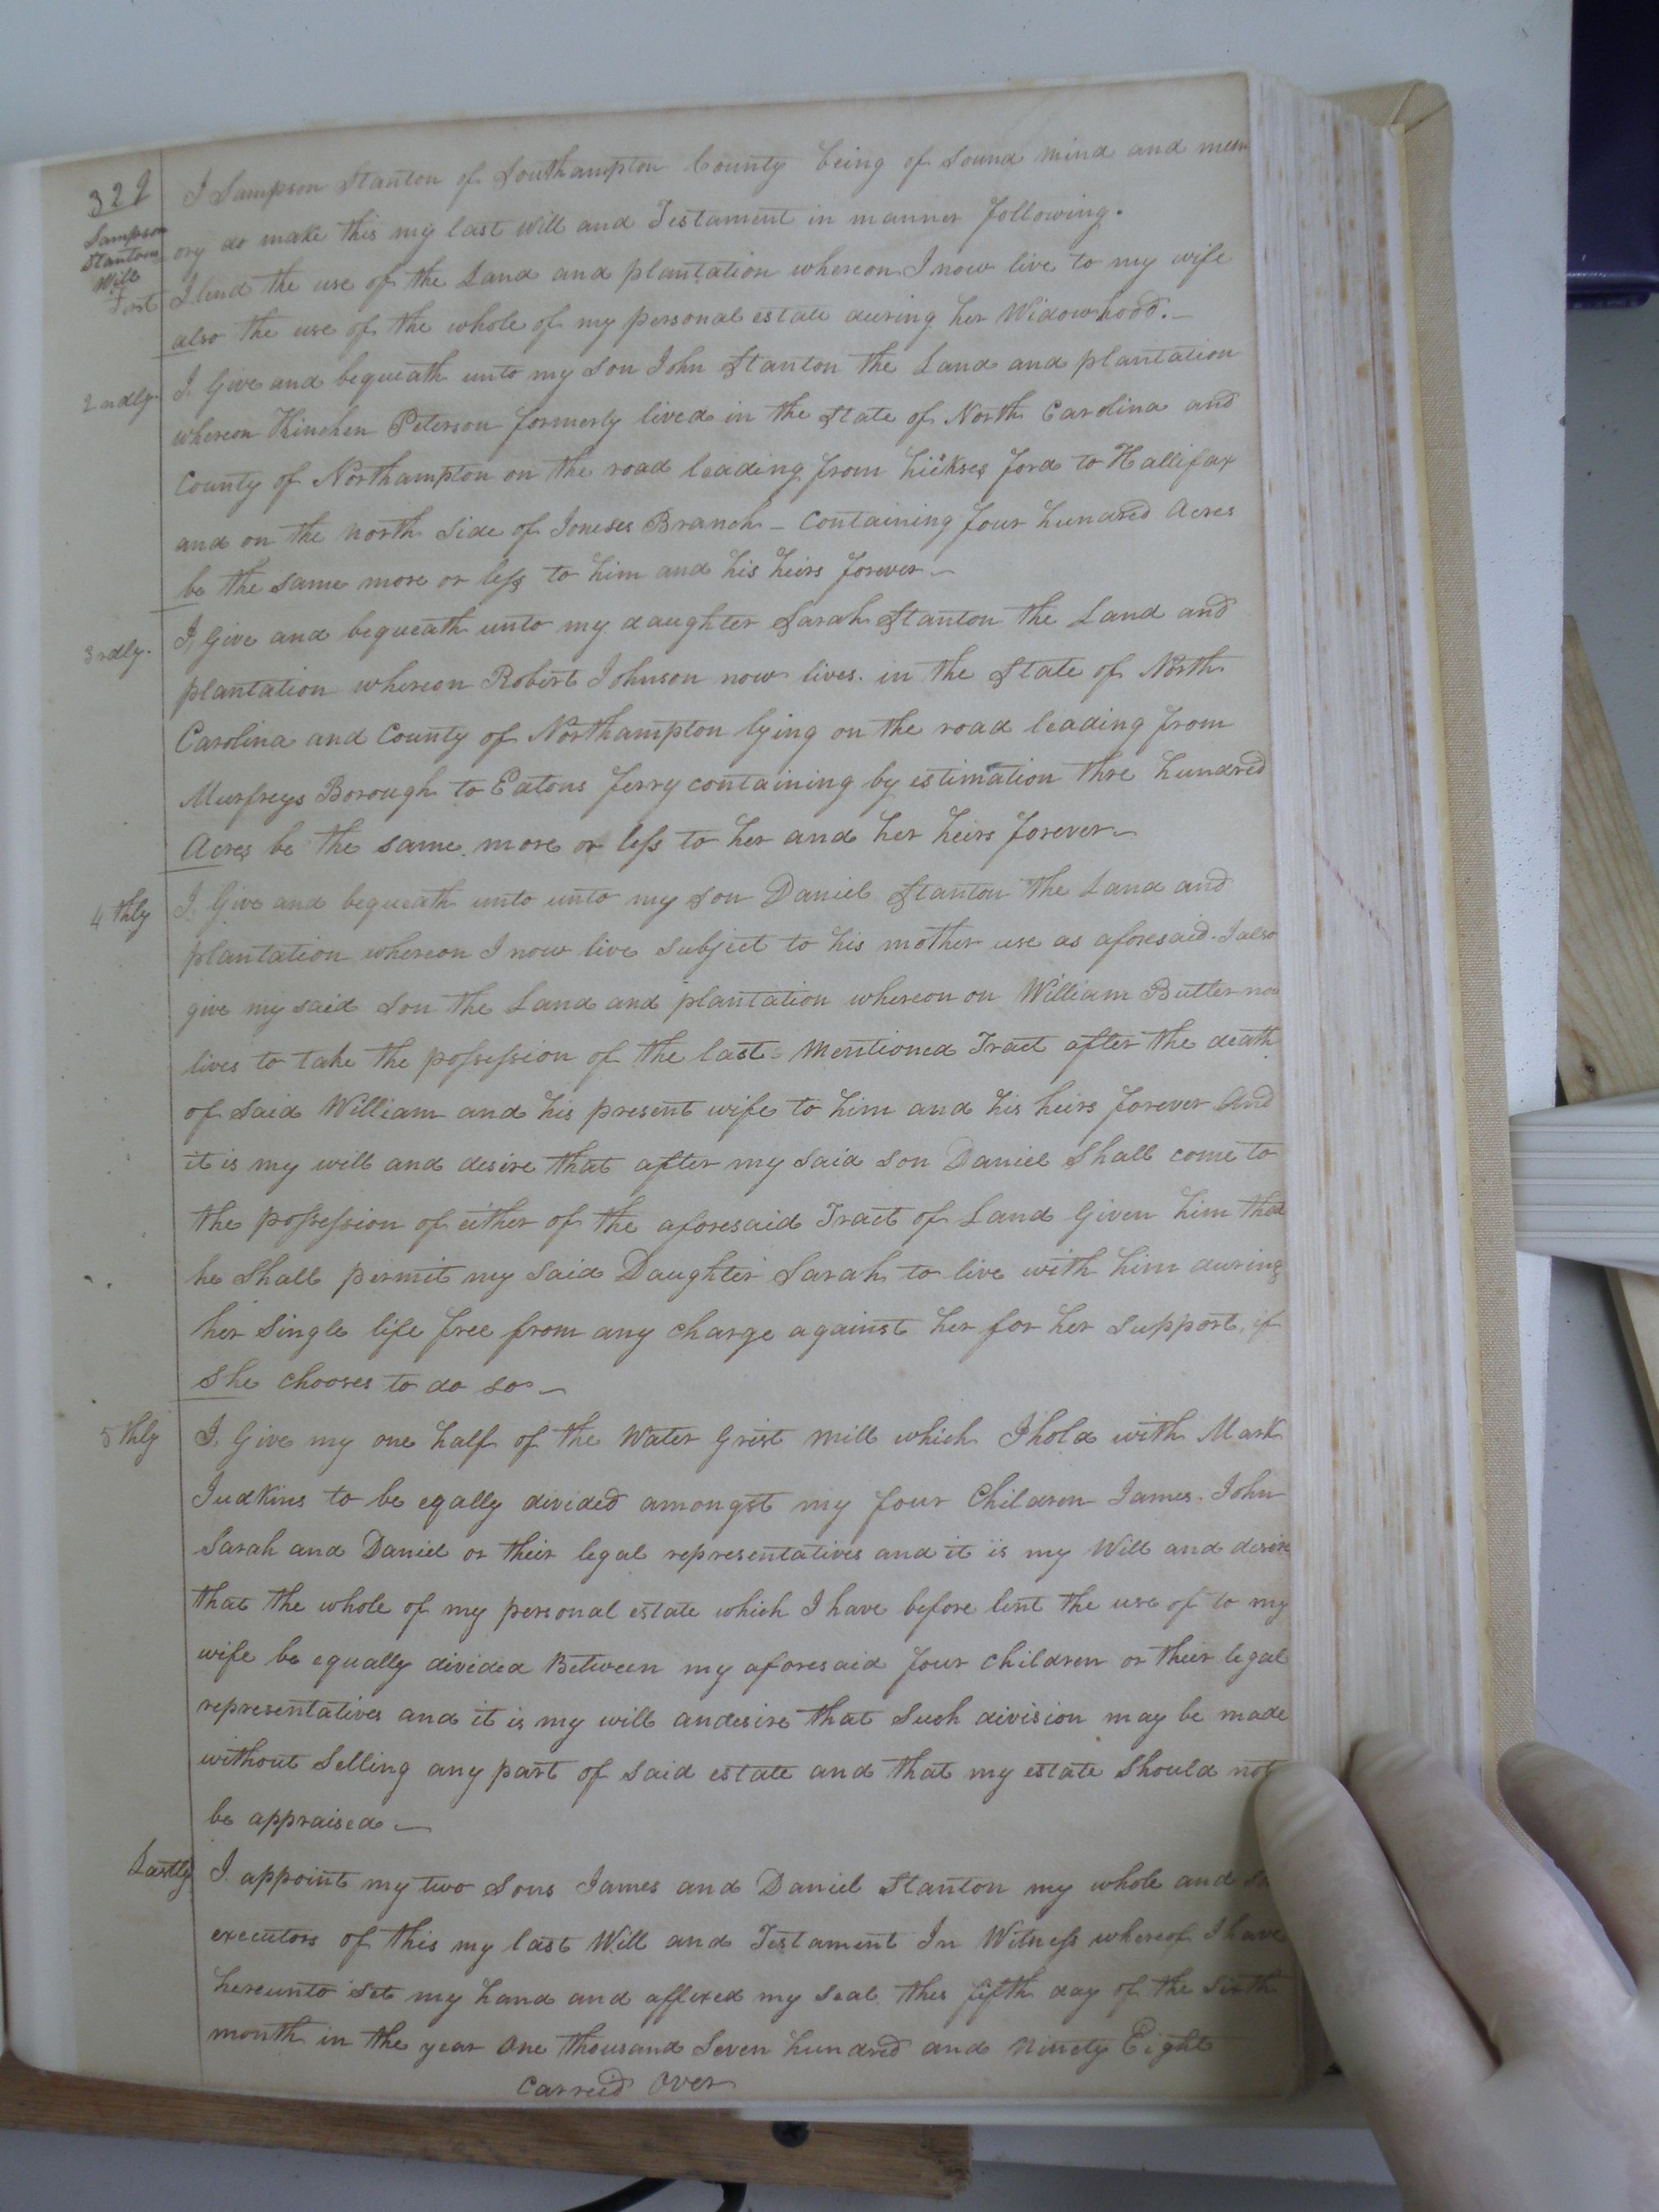 329
Sampson
Stantons
Will
I Sampson Stanton of Southampton County being of sound mind and mem
ory do make this my last Will and Testament in manner following.
First I lend the use of the Land and plantation whereon I now live to my wife
also the use of the whole of my personal estate during her Widowhood. -
2ndly. I Give and bequeath unto my son John Stanton the Land and plantation
whereon Kinchen Peterson formerly lived in the State of North Carolina and
County of Northampton on the road leading from hickses ford to Hallifax
and on the north side of Joneses Branch - Containing four hundred Acres
be the same more or less to him and his heirs forever -
3rdly. I Give and bequeath unto my daughter Sarah Stanton the Land and
plantation whereon Robert Johnson now lives. in the State of North
Carolina and County of Northampton lying on the road leading from
Murfreys Borough to Eatons ferry containing by estimation thre hundred
Acres be the same more or less to her and her heirs forever -
4thly I Give and bequeath unto unto my son Daniel Stanton the Land and
plantation whereon I now live subject to his mother use as aforesaid. I also
give my said son the Land and plantation whereon on William Butler now
lives to take the possession of the last mentioned Tract after the death
of said William and his present wife to him and his heirs forever And
it is my will and desire that after my said son Daniel Shall come to
the possession of either of the aforesaid Tract of Land Given him that
he Shall permit my said Daughter Sarah to live with him during
her single life free from any charge against her for her support, if
she chooses to do so -
5thly I Give my one half of the Water Grist mill which I hold with Mark
Judkins to be eqally divided amongst my four Children James. John
Sarah and Daniel or their legal representatives and it is my Will and desire
that the whole of my personal estate which I have before lent the use of to my
wife be equally divided Between my aforesaid four children or their legal
representatives and it is my will andesire that Such division may be made
without Selling any part of said estate and that my estate Should not
be appraised -
Lastly I appoint my two Sons James and Daniel Stanton my whole and
executors of this my last Will and Testament In Witness whereof I have
hereunto set my hand and affixed my seal this fifth day of the sixth
month in the year One thousand Seven hundred and Ninety Eight
Carreid Over